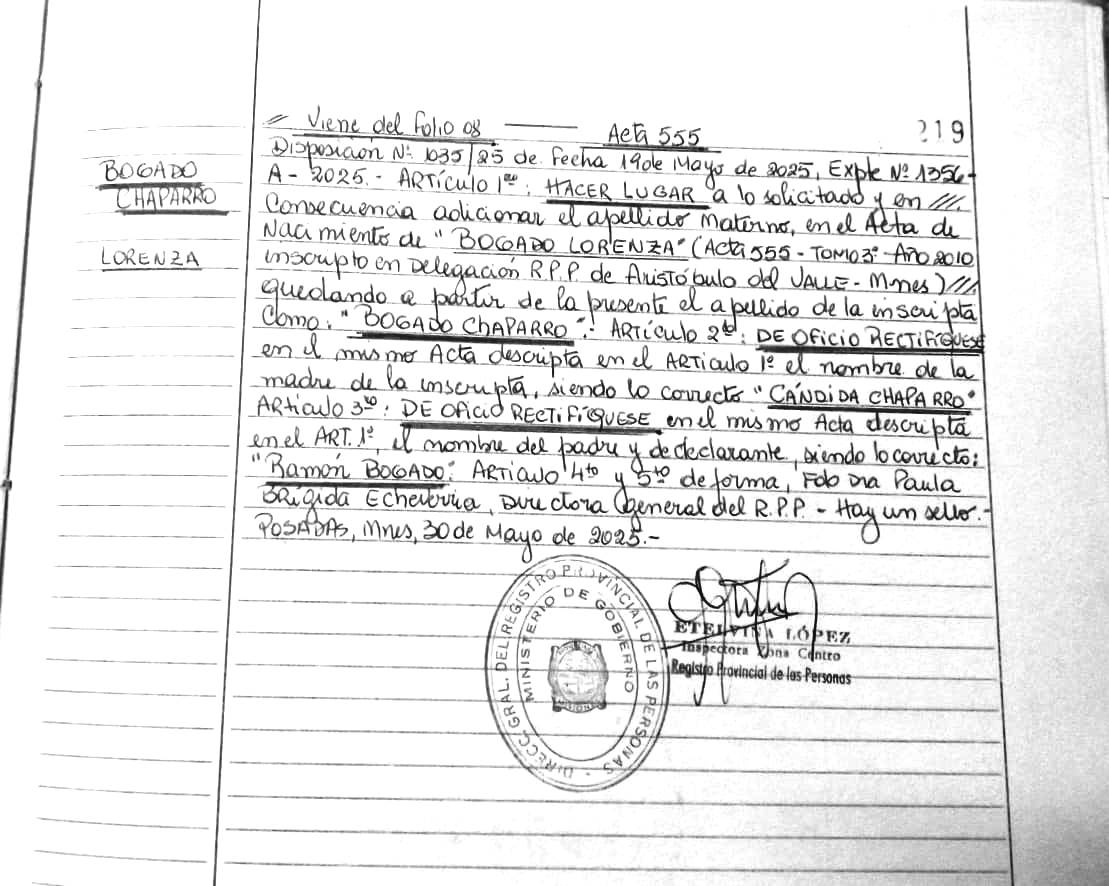 // Viene del folio 08 ——— Acta 555
219
Disposición Nº 1035/25 de Fecha 19 de Mayo de 2025, Expte Nº 1356-
A - 2025.- ARTÍCULO 1ro: HACER LUGAR a lo solicitado y en ///.
Consecuencia adicionar el apellido Materno, en el Acta de
Nacimiento de "BOGADO LORENZA" (Acta 555 - TOMO 3º - Año 2010
inscripto en Delegación R.P.P. de Aristóbulo del VALLE - Mnes) ///
quedando a partir de la presente el apellido de la inscripta
Como: "BOGADO CHAPARRO".- ARTÍCULO 2do: DE OFICIO RECTIFÍQUESE
en el mismo Acta descripta en el ARTICULO 1º el nombre de la
madre de la inscripta, siendo lo correcto "CÁNDIDA CHAPARRO"
ARTículo 3ro: DE OFICIO RECTIFÍQUESE en el mismo Acta descripta
en el ART. 1º, el nombre del padre y de declarante, siendo lo correcto:
"Ramón BOGADO". ARTICULO 4to y 5to de forma, Fdo Dra Paula
BRÍGIDA Echeverria, Directora General del R.P.P. - Hay un sello.-
POSADAS, Mnes, 30 de Mayo de 2025.-
BOGADO
CHAPARRO
LORENZA
DIRECC. GRAL. DEL REGISTRO PROVINCIAL DE LAS PERSONAS
MINISTERIO DE GOBIERNO
MISIONES
ETELVINA LÓPEZ
Inspectora Zona Centro
Registro Provincial de las Personas